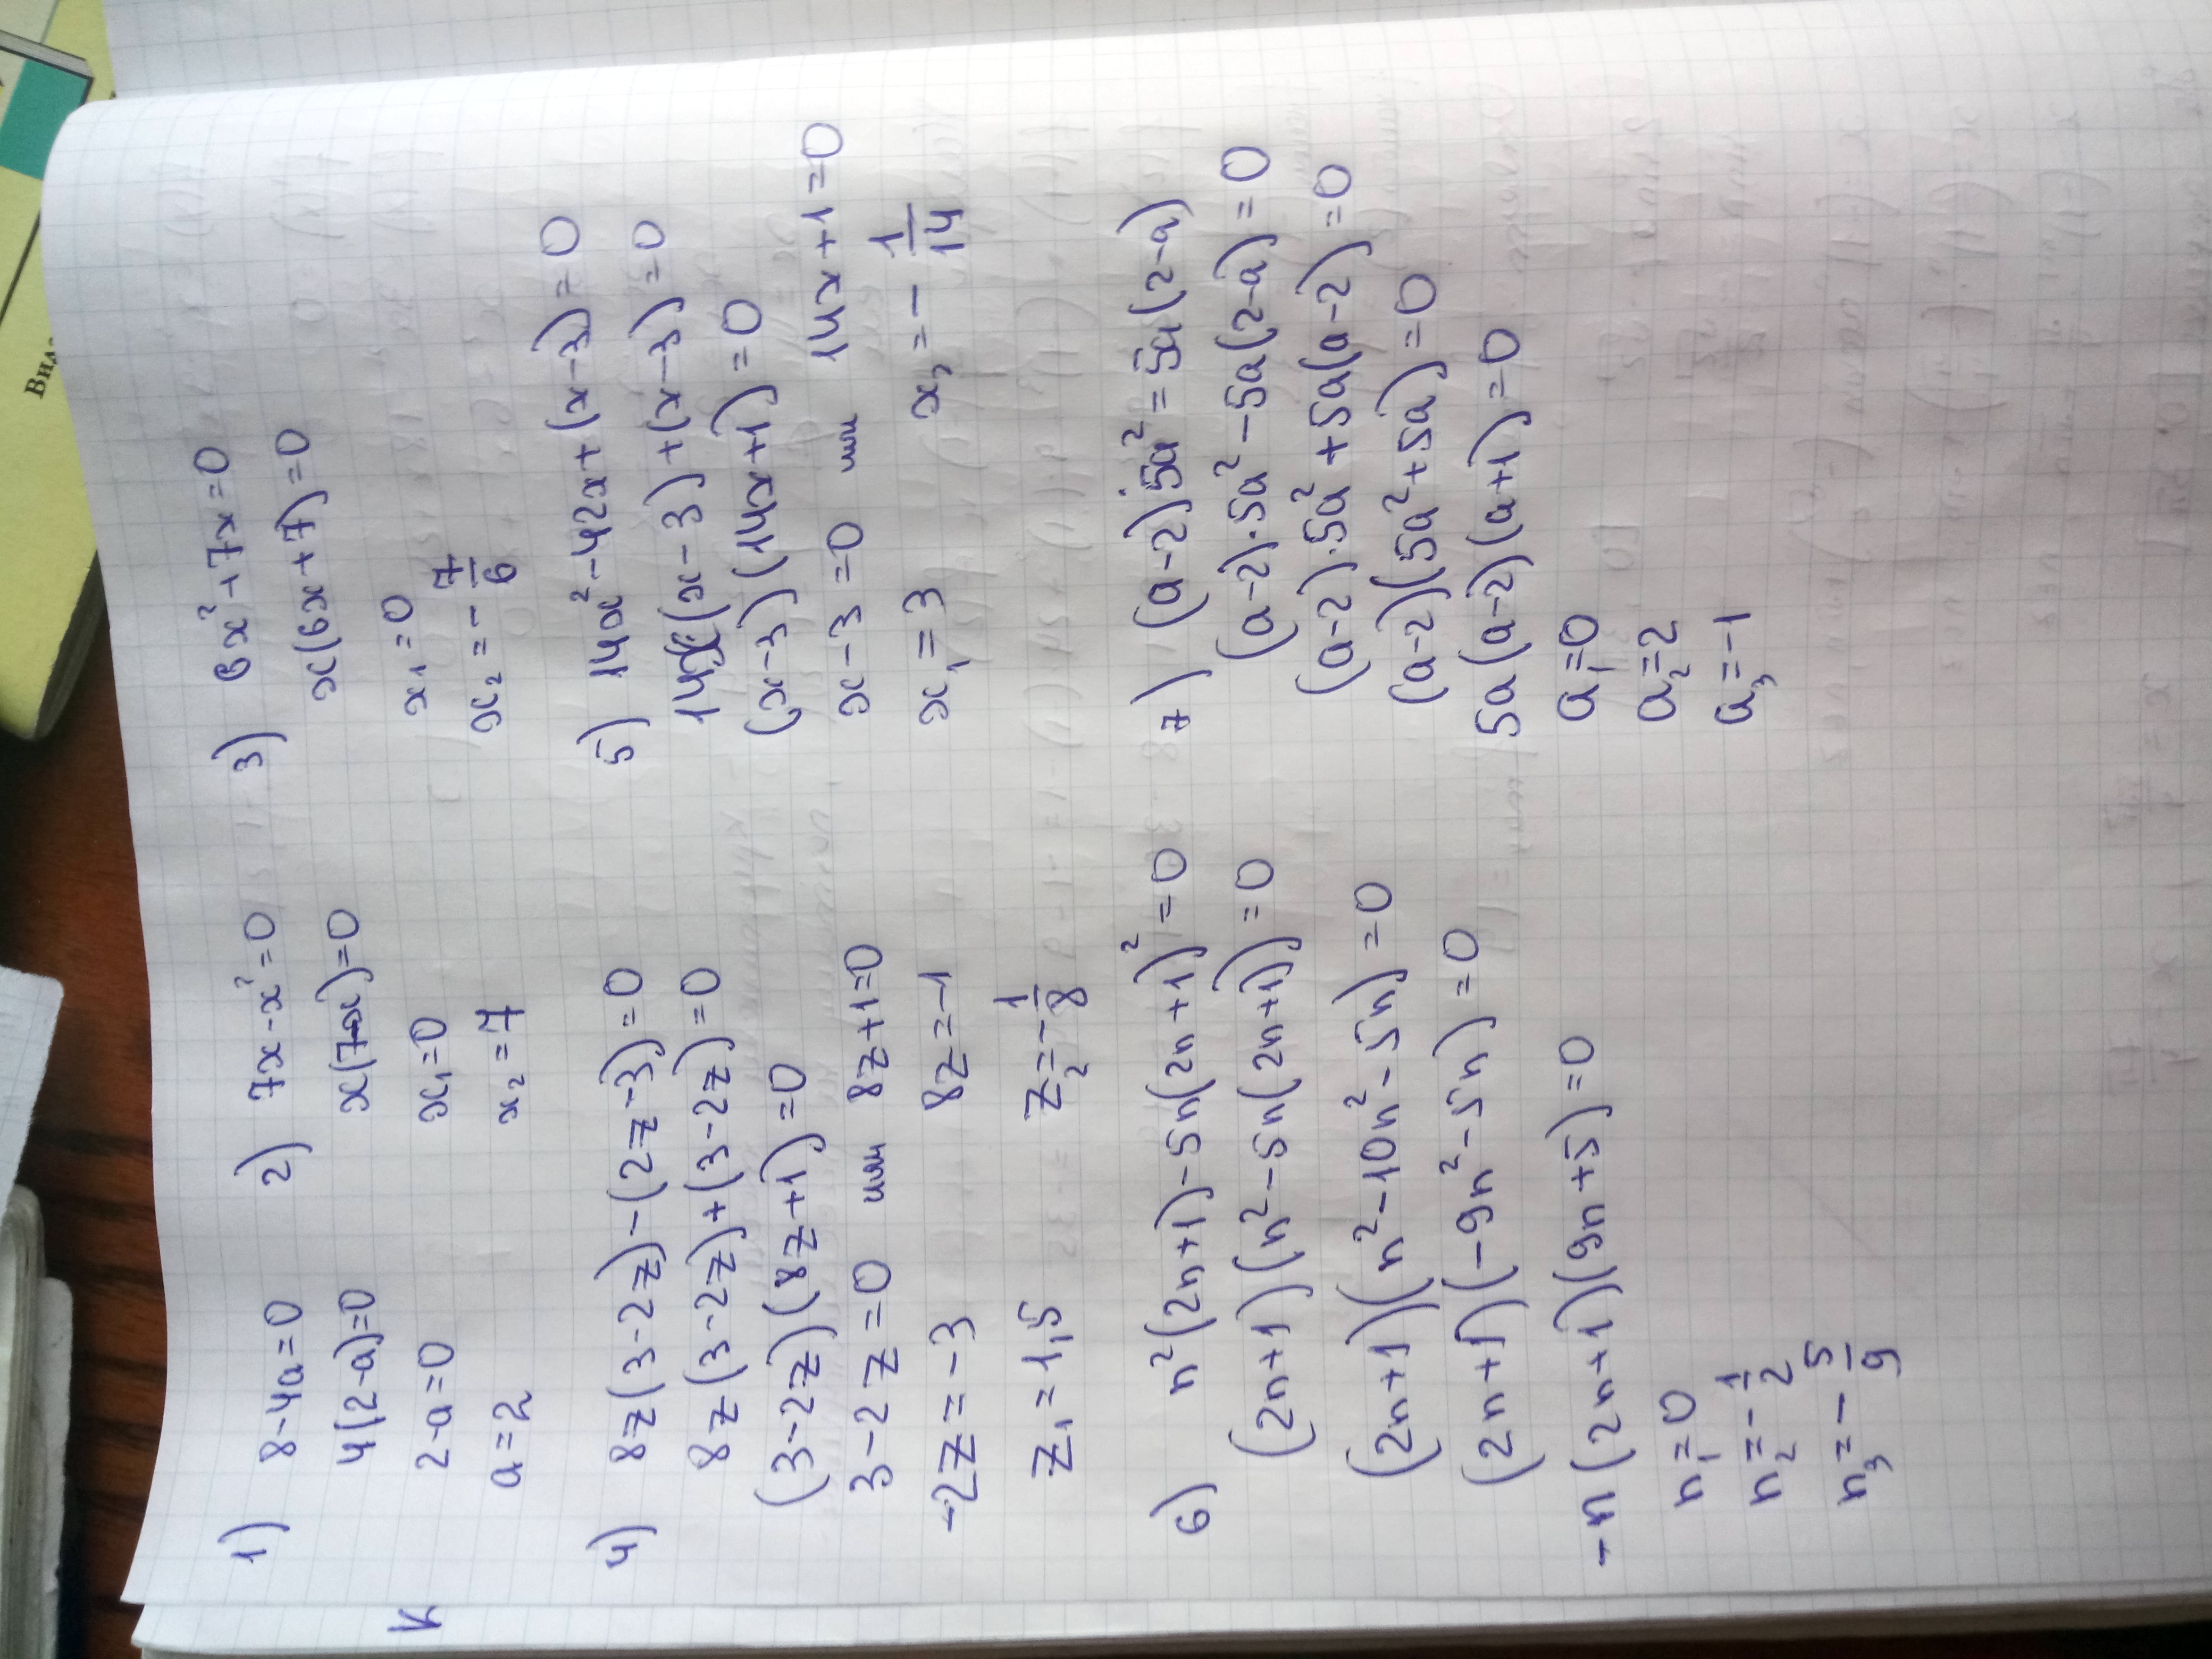 1) 8-4a=0
4(2-a)=0
2-a=0
a=2
2) 7x-x²=0
x(7-x)=0
x₁=0
x₂=7
3) 6x²+7x=0
x(6x+7)=0
x₁=0
x₂=-7/6
4) 8z(3-2z)-(2z-3)=0
8z(3-2z)+(3-2z)=0
(3-2z)(8z+1)=0
3-2z=0 или 8z+1=0
-2z=-3 8z=-1
z₁=1,5 z₂=-1/8
5) 14x²-42x+(x-3)=0
14x(x-3)+(x-3)=0
(x-3)(14x+1)=0
x-3=0 или 14x+1=0
x₁=3 x₂=-1/14
6) n²(2n+1)-5n(2n+1)²=0
(2n+1)(n²-5n(2n+1))=0
(2n+1)(n²-10n²-5n)=0
(2n+1)(-9n²-5n)=0
-n(2n+1)(9n+5)=0
n₁=0
n₂=-1/2
n₃=-5/9
7) (a-2)·5a²=5a(2-a)
(a-2)·5a²-5a(2-a)=0
(a-2)·5a²+5a(a-2)=0
(a-2)(5a²+5a)=0
5a(a-2)(a+1)=0
a₁=0
a₂=2
a₃=-1
К